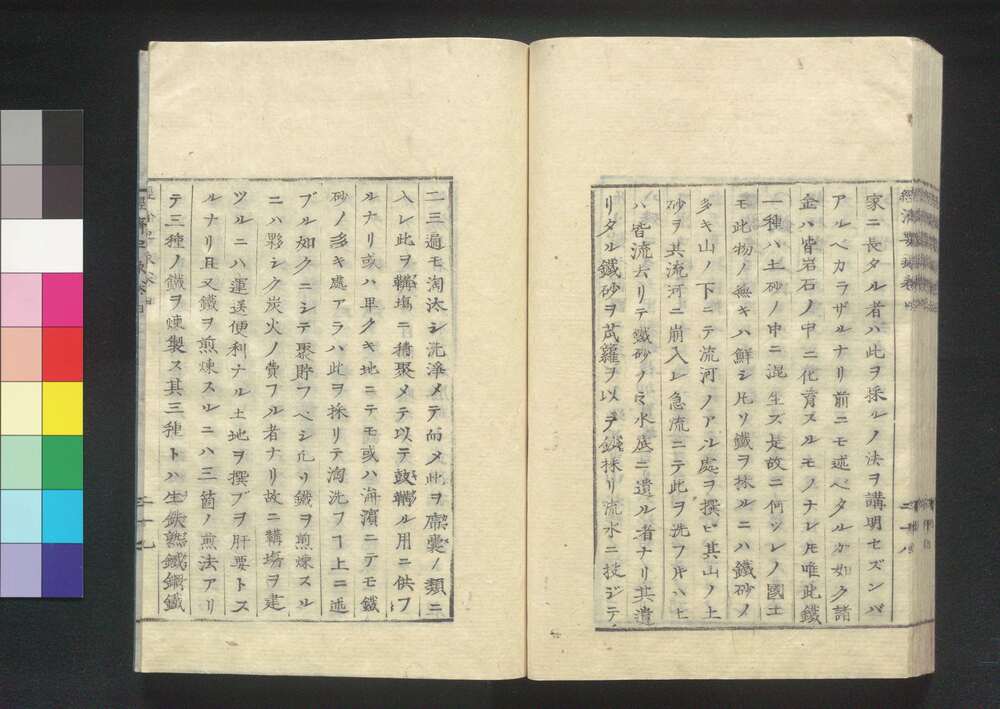 家ニ長タル者ハ此ヲ採ルノ法ヲ講明セズンバ
アルベカラザルナリ前ニモ述ベタルガ如ク諸
金ハ皆岩石ノ中ニ化育スルモノナレ𪜈唯此鐵
一種ハ土砂ノ中ニ混生ズ是故ニ何ツレノ國土
モ此物ノ無キハ鮮シ凡ソ鐵ヲ採ルニハ鐵砂ノ
多キ山ノ下ニテ流河ノアル處ヲ撰ビ其山ノ上
砂ヲ其流河ニ崩入レ急流ニテ此ヲ洗フ𪜈ハ土
ハ皆流去リテ鐵砂ノミ水底ニ遺ル者ナリ其遺
リタル鐵砂ヲ 籮ヲ以テ 採リ流水ニ投ジテ
二三遍モ淘汰シ洗淨メテ而〆此ヲ 囊ノ類ニ
入レ此ヲ鞴塲ニ積聚メテ以テ鼓鞴ルノ用ニ供フ
ルナリ或ハ卑クキ地ニテモ或ハ海濱ニテモ鐵
砂ノ多キ處アラハ此ヲ採リテ淘洗フヿ上ニ述
ブル如クニシテ聚貯フベシ凡リ鐵ヲ煎煉スル
ニハ夥シク炭火ノ費フル者ナリ故ニ鞴塲ヲ建
ツルニハ運送便利ナル土地ヲ撰ブヲ肝要トス
ルナリ且又鐵ヲ煎煉スルニハ三箇ノ煎法アリ
テ三種ノ鐵ヲ煉製ス其三種トハ生鉄熟鐵鋼鐵